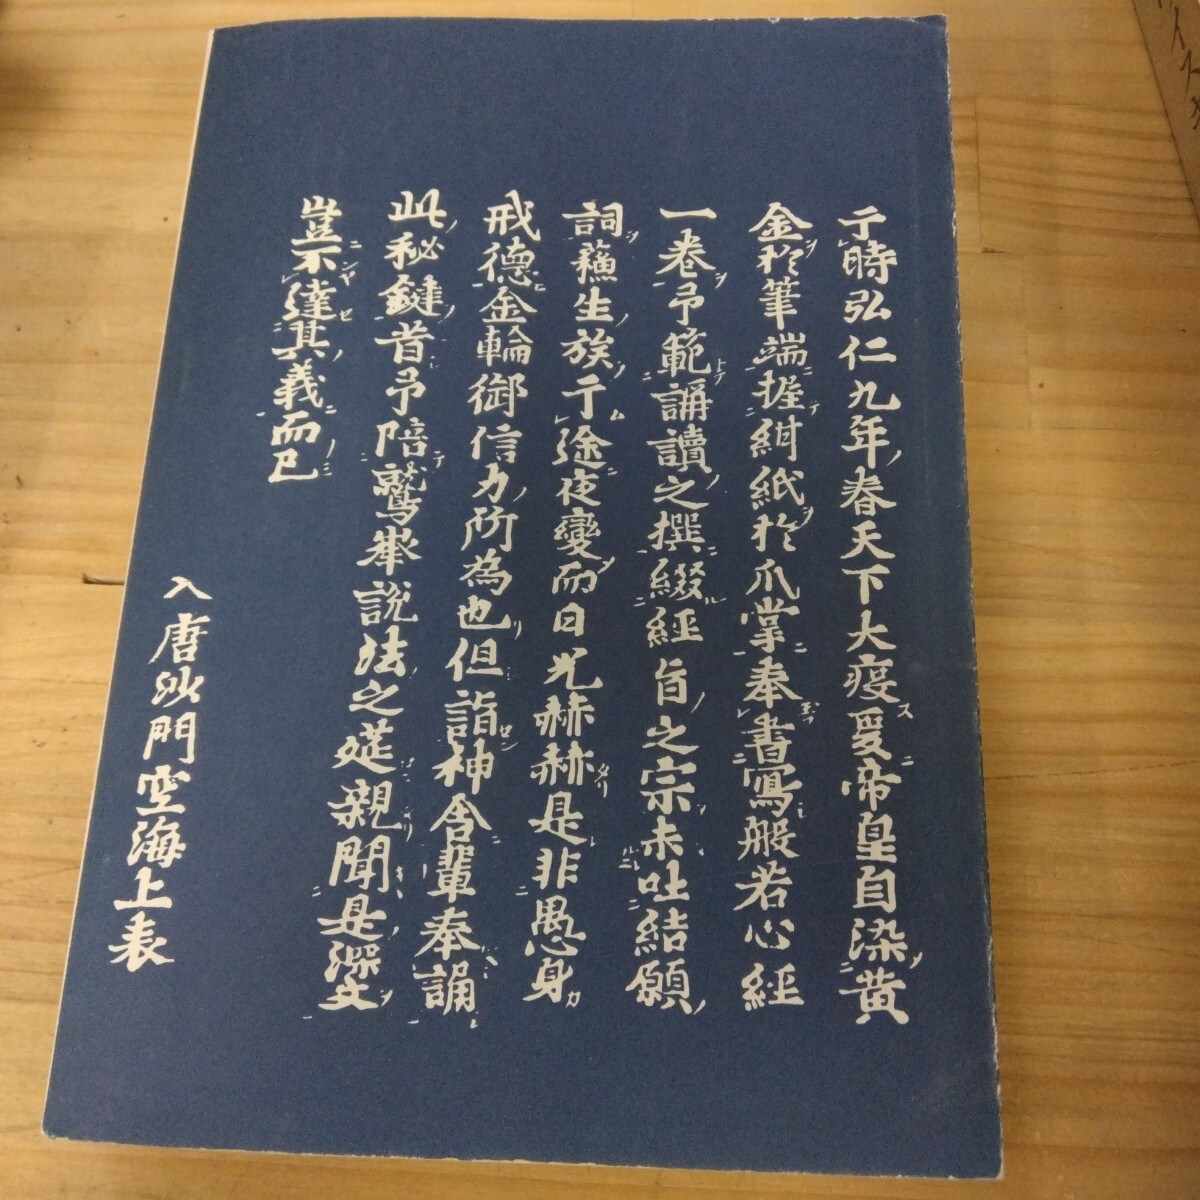 于時弘仁九年春天下大疫爰帝皇自染黄
金於筆端握紺紙於爪掌奉書寫般若心經
一卷予範誦讀之撰綴經旨之宗未吐結願
詞蘓生族于途夜變而日光赫赫是非愚身
戒德金輪御信力所為也但詣神舍輩奉誦
此秘鍵昔予陪鷲峯說法之莚親聞是深文
豈不達其義而已
入唐沙門空海上表